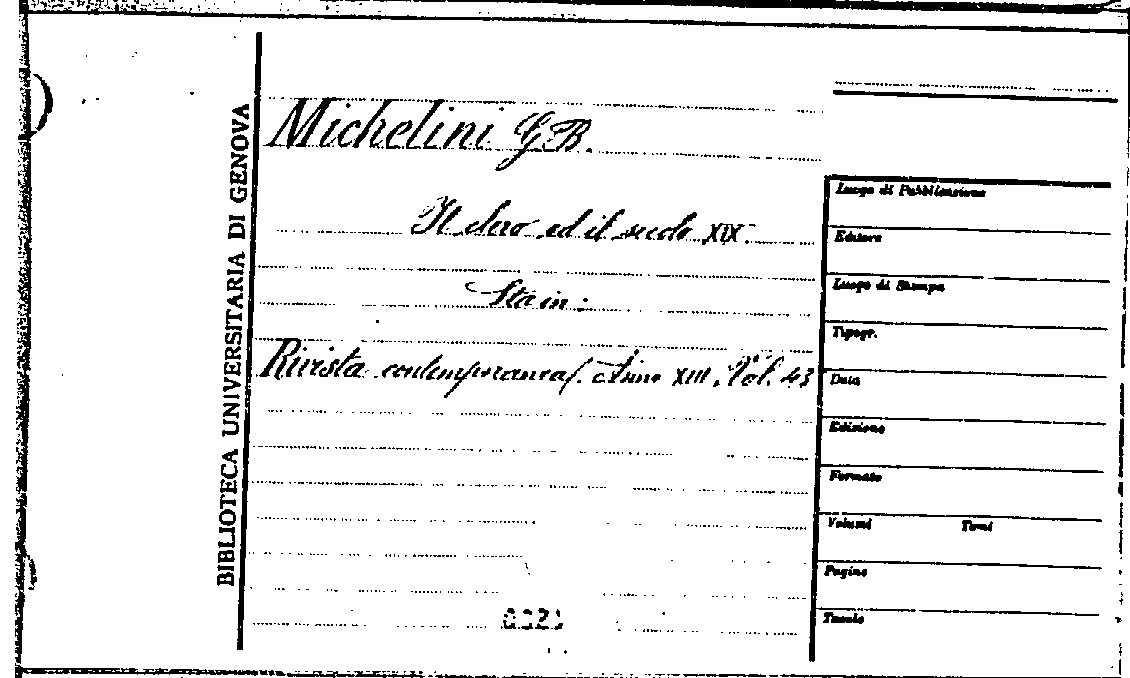 BIBLIOTECA UNIVERSITARIA DI GENOVA
Michelini G B.
Il clero ed il secolo XIX.
Sta in:
Rivista contemporanea. Anno XIII, Vol. 43
Luogo di Pubblicazione
Editore
Luogo di Stampa
Tipogr.
Data
Edizione
Formato
Volumi Tomi
Pagine
Tavole